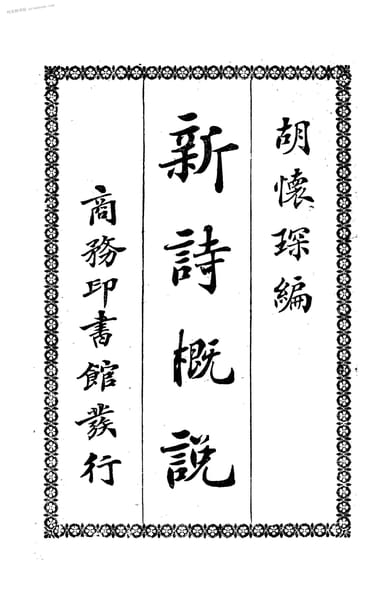 胡懷琛編
新詩概説
商務印書館發行